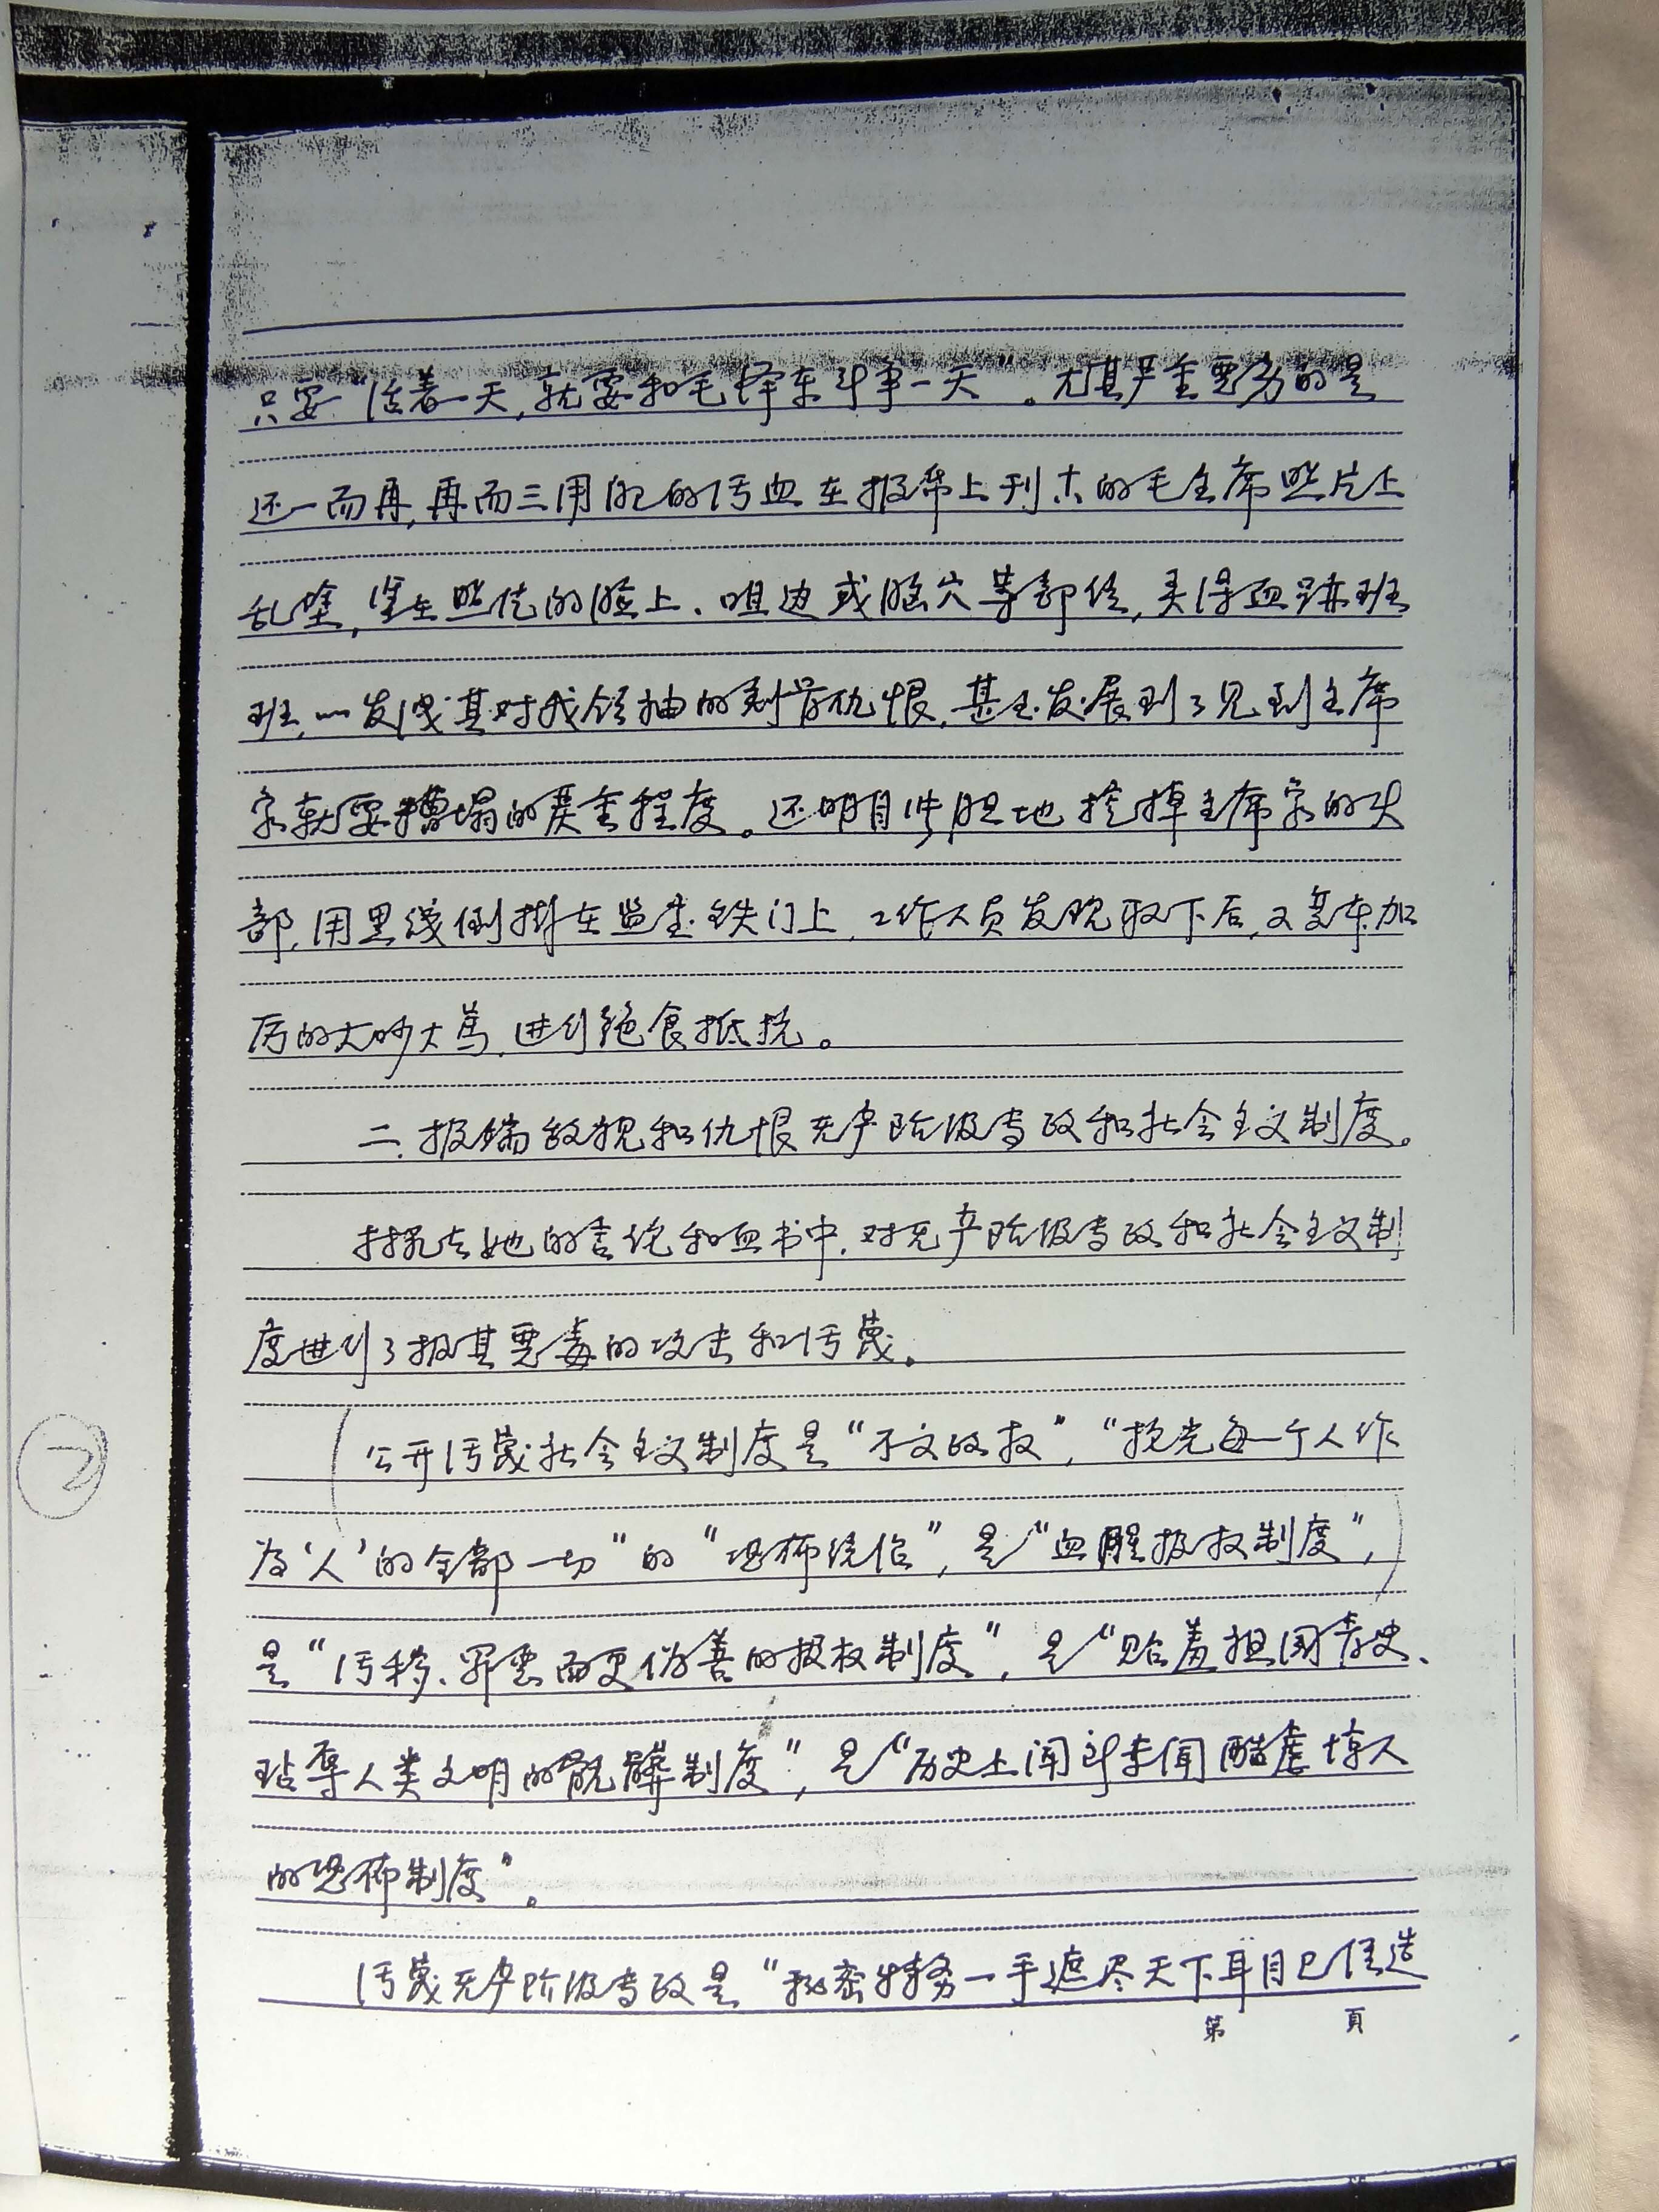 只要“活着一天,就要和毛泽东斗争一天”。尤其严重恶劣的是
还一而再,再而三用的污血在报帋上刊出的毛主席照片上
乱塗,塗在照片的脸上、咀边或脑穴等部位,弄得血跡班
班,一发洩其对我领袖的刻骨仇恨,甚至发展到了见到主席
字就要糟塌的严重程度。还明目张胆地挖掉主席家的头
部,用黑线倒掛在监室铁门上,工作人员发现取下后,又变本加
厉的大吵大骂,进行绝食抵抗。
二、极端敌视和仇恨无产阶级专政和社会主义制度。
林犯在她的言论和血书中,对无产阶级专政和社会主义制
度进行了极其恶毒的攻击和污蔑。
公开污蔑社会主义制度是“不文政权”,“抢光每一个人作
为‘人’的全部一切”的“恐怖统治”,是“血腥极权制度”,
是“污秽、罪恶而更伪善的极权制度”,是“贻羞祖国青史、
玷辱人类文明的骯髒制度”,是“历史上闻所未闻酷虐惊人
的恐怖制度”。
②
污蔑无产阶级专政是“秘密特务一手遮尽天下耳目已任造
第 頁